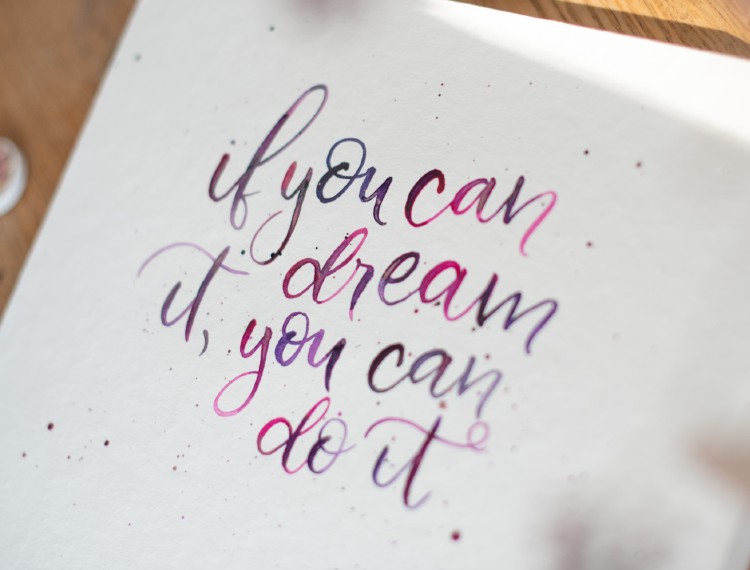 if you can
dream
it, you can
do it